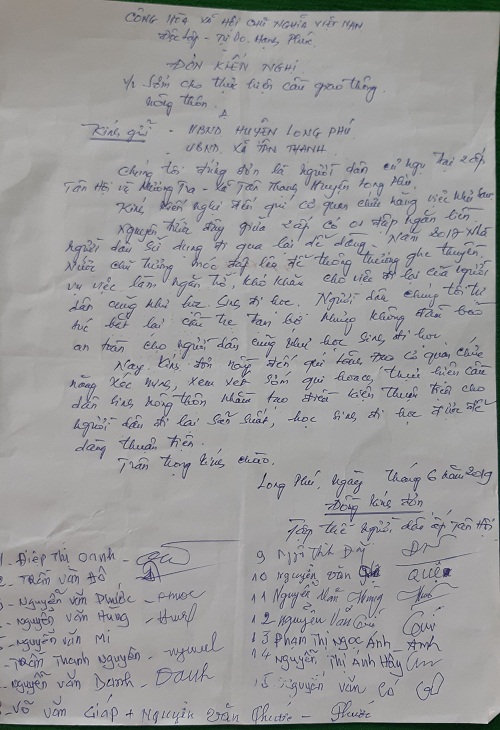 CÔNG HÒA XÃ HỘI CHŨ NGHĨA VIỆT NAM
Độc lập - Tự Do. Hạnh Phúc.
ĐƠN KIẾN NGHỊ
V/v Sớm cho thực hiện cầu giao thông
nông thôn.
Kính gửi - UBND HUYỆN LONG PHÚ
- UBND. XÃ TÂN THẠNH
Chúng tôi đứng đơn là người dân cư ngụ tại 2 ấp
Tân Hội và Mương Tra - xã Tân Thạnh Huyện Long Phú.
Kính kiến nghị đến quí cơ quan chức năng việc như sau
Nguyên trước đây giữa 2 ấp có 01 đập ngăn liền
người dân sử dụng đi qua lại dễ dàng - Năm 2017 Nhà
Nước chủ trương móc đập lên để thông thương ghe thuyền
vụ việc làm khó khăn cho việc đi lại của người
dân cũng như học sinh đi học. Người dân chúng tôi tự
bắt lại cầu tre tạm bợ nhưng không đảm bảo
an toàn cho người dân cũng như học sinh đi học.
Nay kính đơn này đến quí lãnh đạo cơ quan chức
năng xem xét sớm qui hoạch, thực hiện cầu
dân sinh nông thôn nhằm tạo điều kiện thuận tiện cho
người dân đi lại sản suất, học sinh đi học được dễ
dàng thuận tiện.
Trân trọng kính chào.
Long Phú, ngày tháng 6 năm 2019
Đồng kính đơn
Tập thể người dân ấp Tân Hội
1 - Điệp Thị Oanh -
- Trần Văn Đô
- Nguyễn Văn Phước - Phước
- Nguyễn Văn Hùng - Hùng
- Nguyễn Văn Mi
- Trần Thanh Nguyên - nguyên
- Nguyễn Văn Danh - Danh
8 - Võ Văn Giáp + Nguyễn Văn Phước - Phước
9
10 Nguyễn Văn Quê
11 Nguyễn
12 Nguyễn Văn
13 Phạm Thị Ngọc Ánh - Anh
14 Nguyễn Thị Ánh
15 Nguyễn Văn